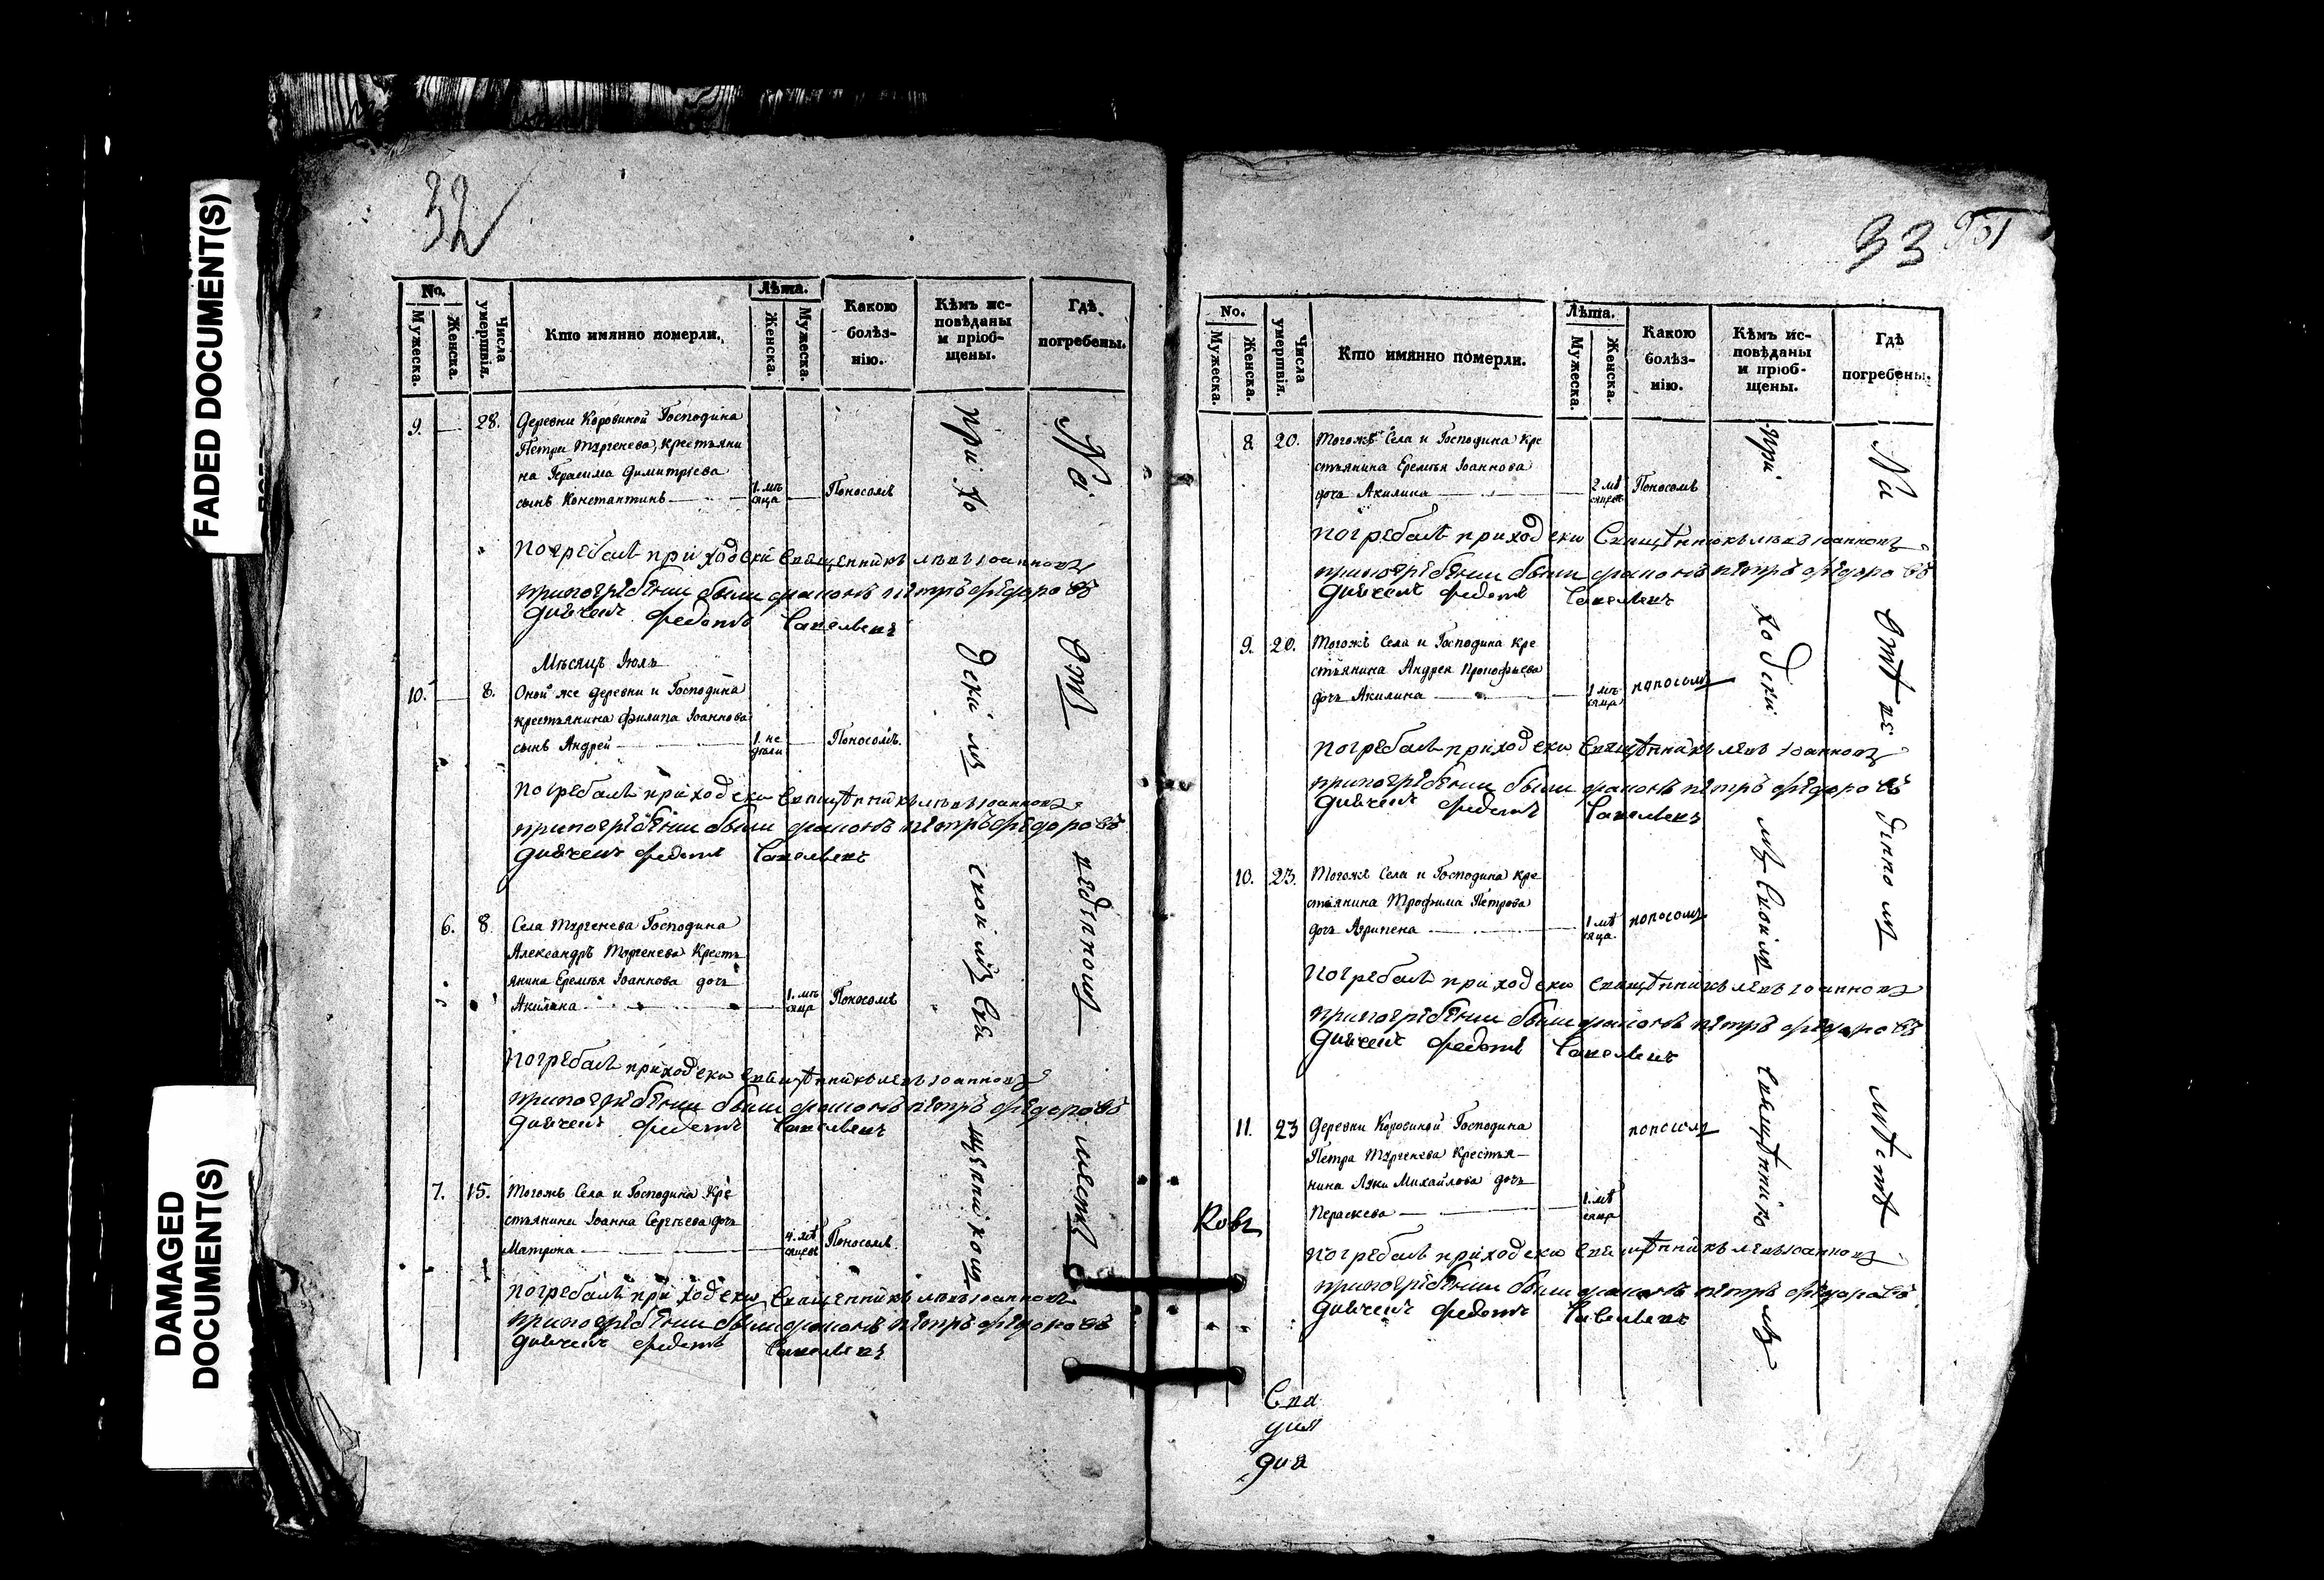 FADED DOCUMENT(S)
DAMAGED
DOCUMENT(S)
32
No.
Мужеска.
Женска.
Числа
умертвія.
Кто имянно померли.
Лѣта.
Женска.
Мужеска.
Какою
болѣз-
нію.
Кѣмъ ис-
повѣданы
и пріоб-
щены.
Гдѣ
погребены.
9. 28. Деревни Коровиной Господина
Петра Тургенева, крестьяни
на Герасима Димитріева
сынъ Константинъ 1. мѣ
сяца Поносомъ
Погребалъ приходски Священникъ левъ Iоанновъ
припогребении были диаконъ петръ федоровъ
дьячекъ федотъ Савельевъ
Мѣсяцъ Іюль
10. 8. Оной же деревни и Господина
крестьянина Филипа Іоаннова
сынъ Андрей 1. не
дели Поносомъ.
Погребалъ приходски Священникъ левъ Iоанновъ
припогребении были диаконъ петръ федоровъ
дьячекъ федотъ Савельевъ
6. 8. Села Тургенева Господина
Александръ Тургенева Кресть
янина Еремѣя Іоаннова дочь
Акилина 1. мѣ
сяца Поносомъ
Погребалъ приходски священникъ левъ Iоанновъ
припогребении были диаконъ петръ федоровъ
дьячекъ федотъ Савельевъ
7. 15. Тогожъ Села и Господина Кре
стьянина Іоанна Сергѣева дочь
Матрона 4. мѣ
сяцовъ Поносомъ.
Погребалъ приходски Священникъ левъ Iоанновъ
припогребении были диаконъ петръ федоровъ
дьячекъ федотъ Савельевъ
При хо
На
От
местѣ
33
No.
Мужеска.
Женска.
Числа
умертвія.
Кто имянно померли.
Лѣта.
Мужеска.
Женска.
Какою
болѣз-
нію.
Кѣмъ ис-
повѣданы
и пріоб-
щены.
Гдѣ
погребены.
8 20. Тогожъ Села и Господина кре
стьянина Еремѣя Іоаннова
дочь Акилина 2 мѣ
сяцовъ Поносомъ
погребалъ приходски Священникъ левъ Iоанновъ
припогребении были диаконъ петръ федоровъ
дьячекъ федотъ Савельевъ
9. 20. Тогожъ Села и Господина кре
стьянина Андрея Прокофьева
дочь Акилина 1 мѣ
сяца поносомъ
погребалъ приходски Священникъ левъ Iоанновъ
припогребении были диаконъ петръ федоровъ
дьячекъ федотъ Савельевъ
10. 23. Тогожъ Села и Господина кре
стьянина Трофима Петрова
дочь Агрипена 1 мѣ
сяца. поносомъ
Погребалъ приходски священникъ левъ Iоанновъ
припогребении были диаконъ петръ федоровъ
дьячекъ федотъ Савельевъ
11. 23 Деревни Коровиной Господина
Петра Тургенева Крестья-
нина Луки Михайлова дочь
Параскева 1. мѣ
сяца поносомъ
погребалъ приходски священникъ левъ Iоанновъ
припогребении были диаконъ петръ федоровъ
дьячекъ федотъ Савельевъ
При
ходски
мъ
Своимъ
Священнико
мъ
На
мѣстѣ
ковъ
Свя
дия
дья